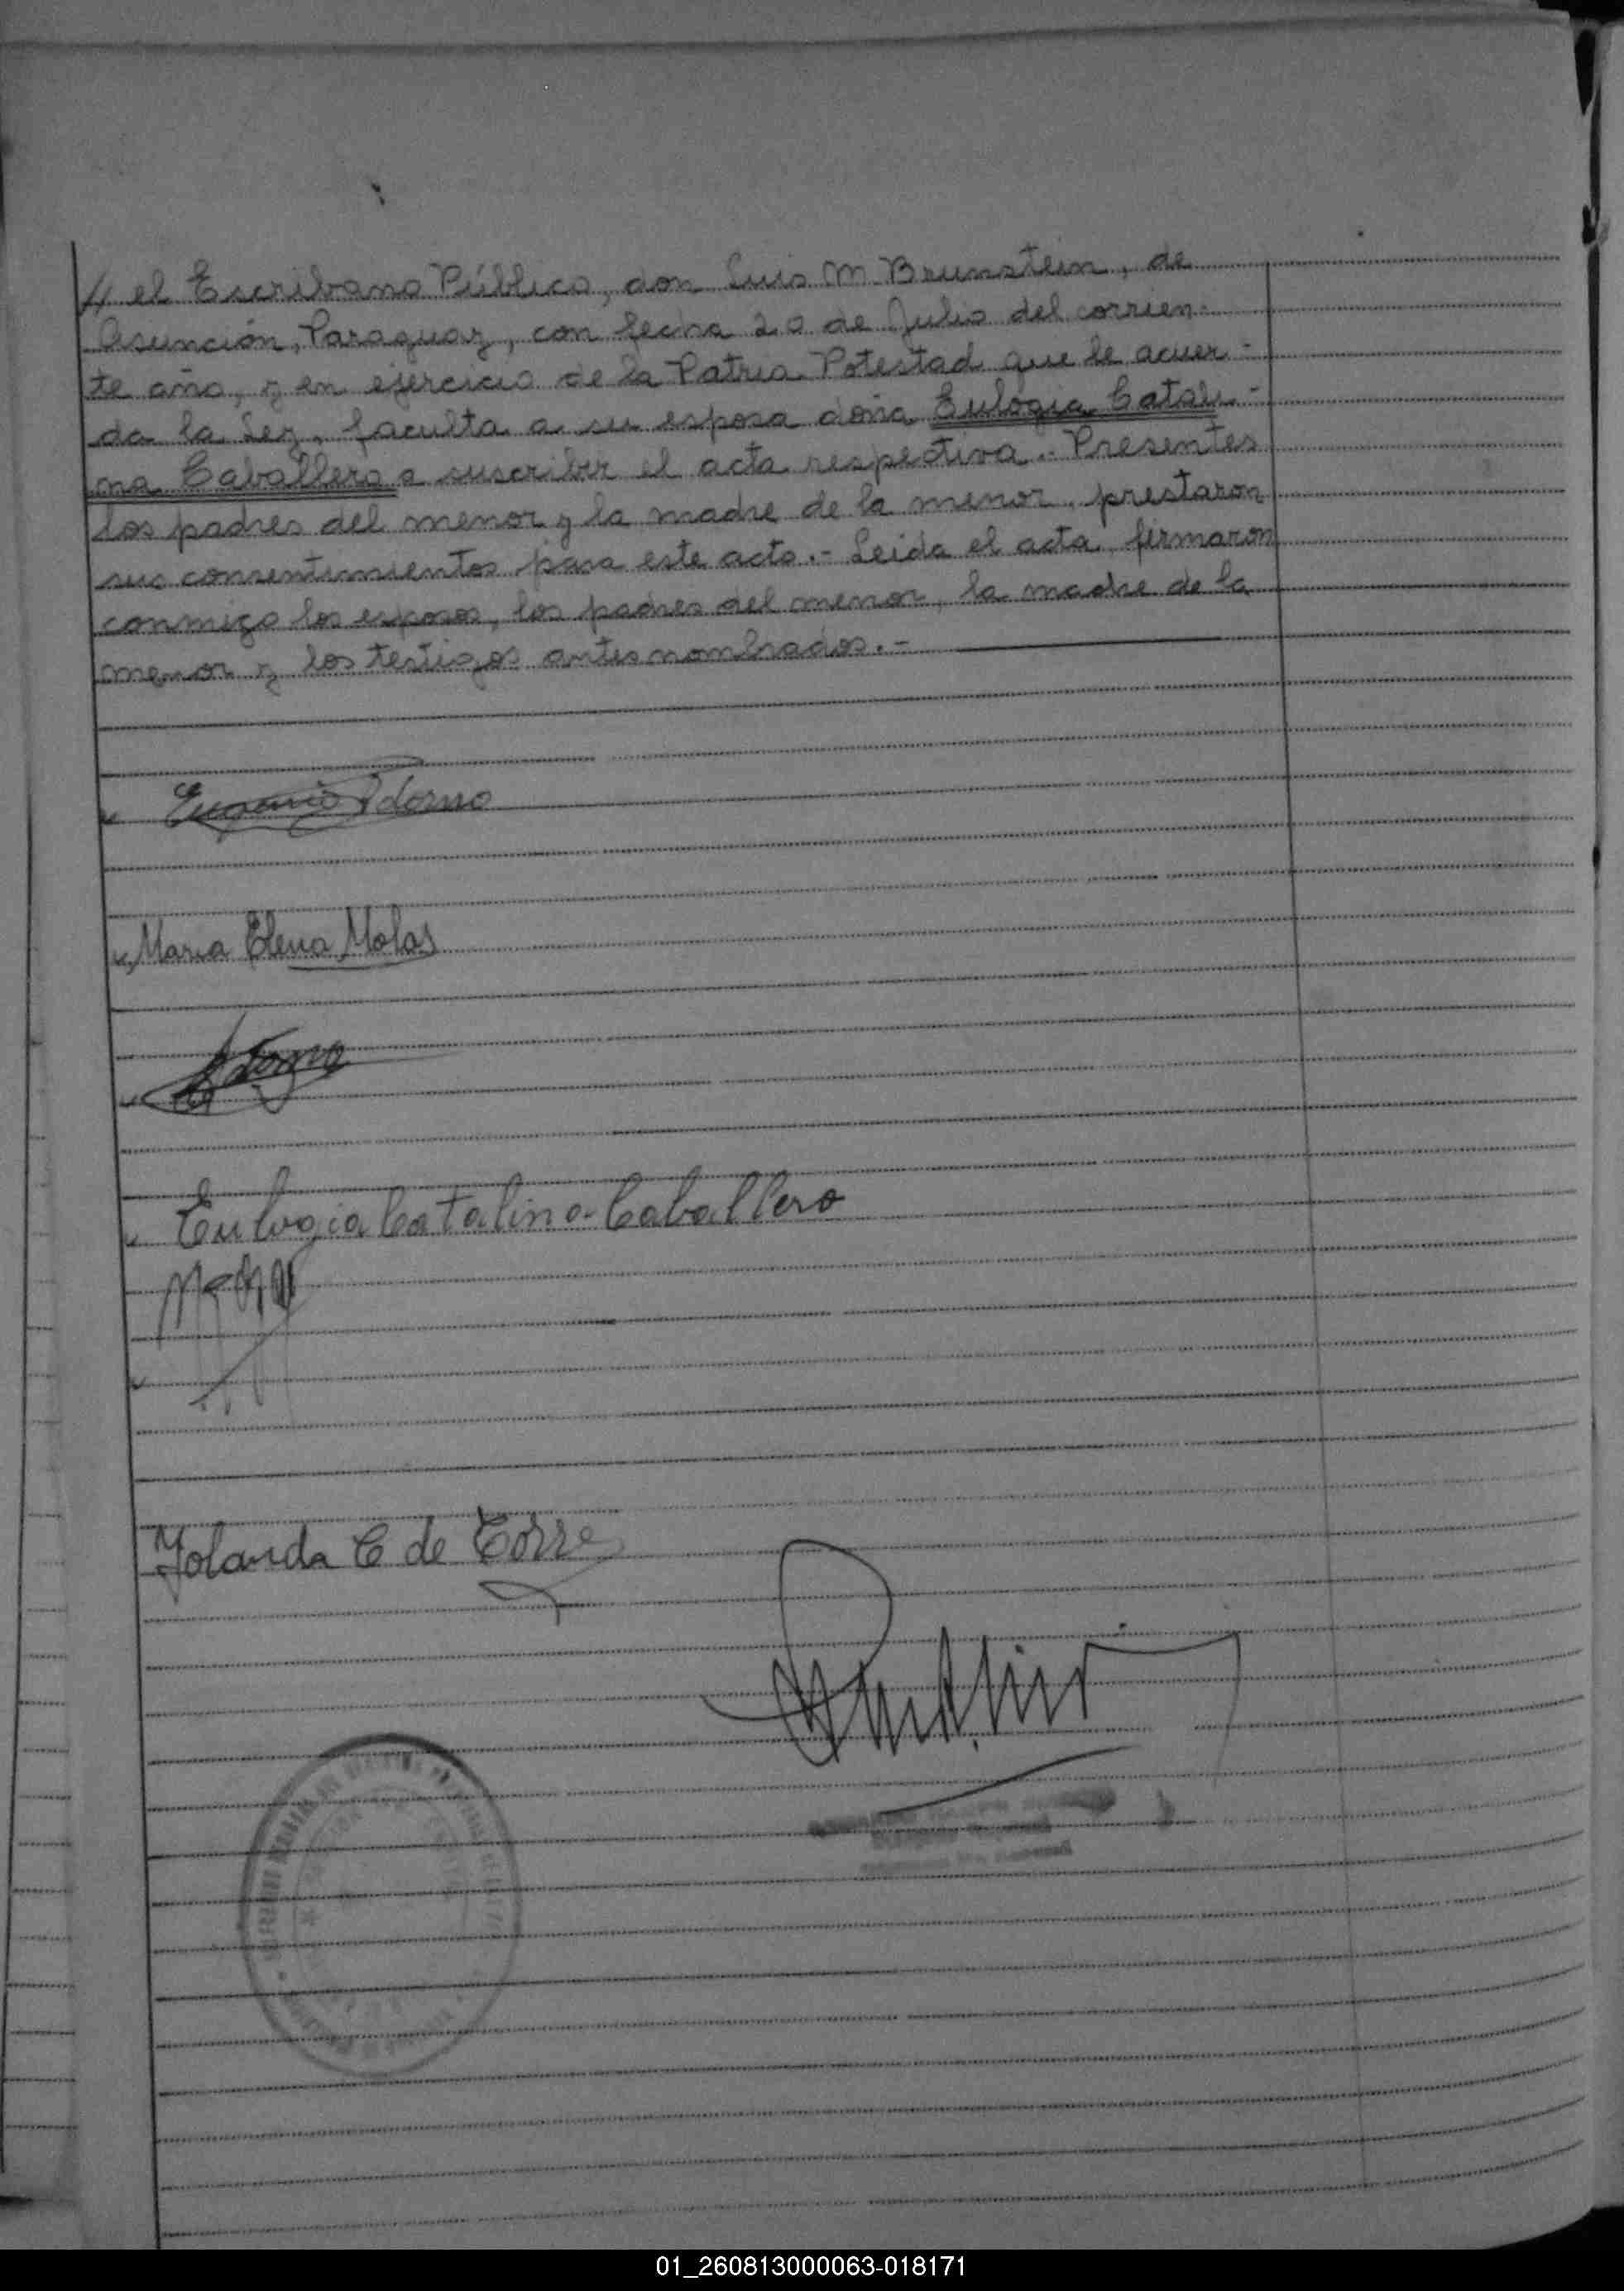 // el Escribano Público, don Luis M. Brunstein, de
Asunción, Paraguay, con fecha 20 de Julio del corrien-
te año, y en ejercicio de la Patria Potestad que le acuer-
da la Ley, faculta a su esposa doña Eulogia Catali-
na Caballero a suscribir el acta respectiva.- Presentes
los padres del menor y la madre de la menor, prestaron
sus consentimientos para este acto.- Leida el acta, firmaron
conmigo los esposos, los padres del menor, la madre de la
menor y los testigos antes nombrados.-
Eugenio Adorno
Maria Elena Molas
Adorno
Eulogia Catalina Caballero
Yolanda C de Torres
01_260813000063-018171